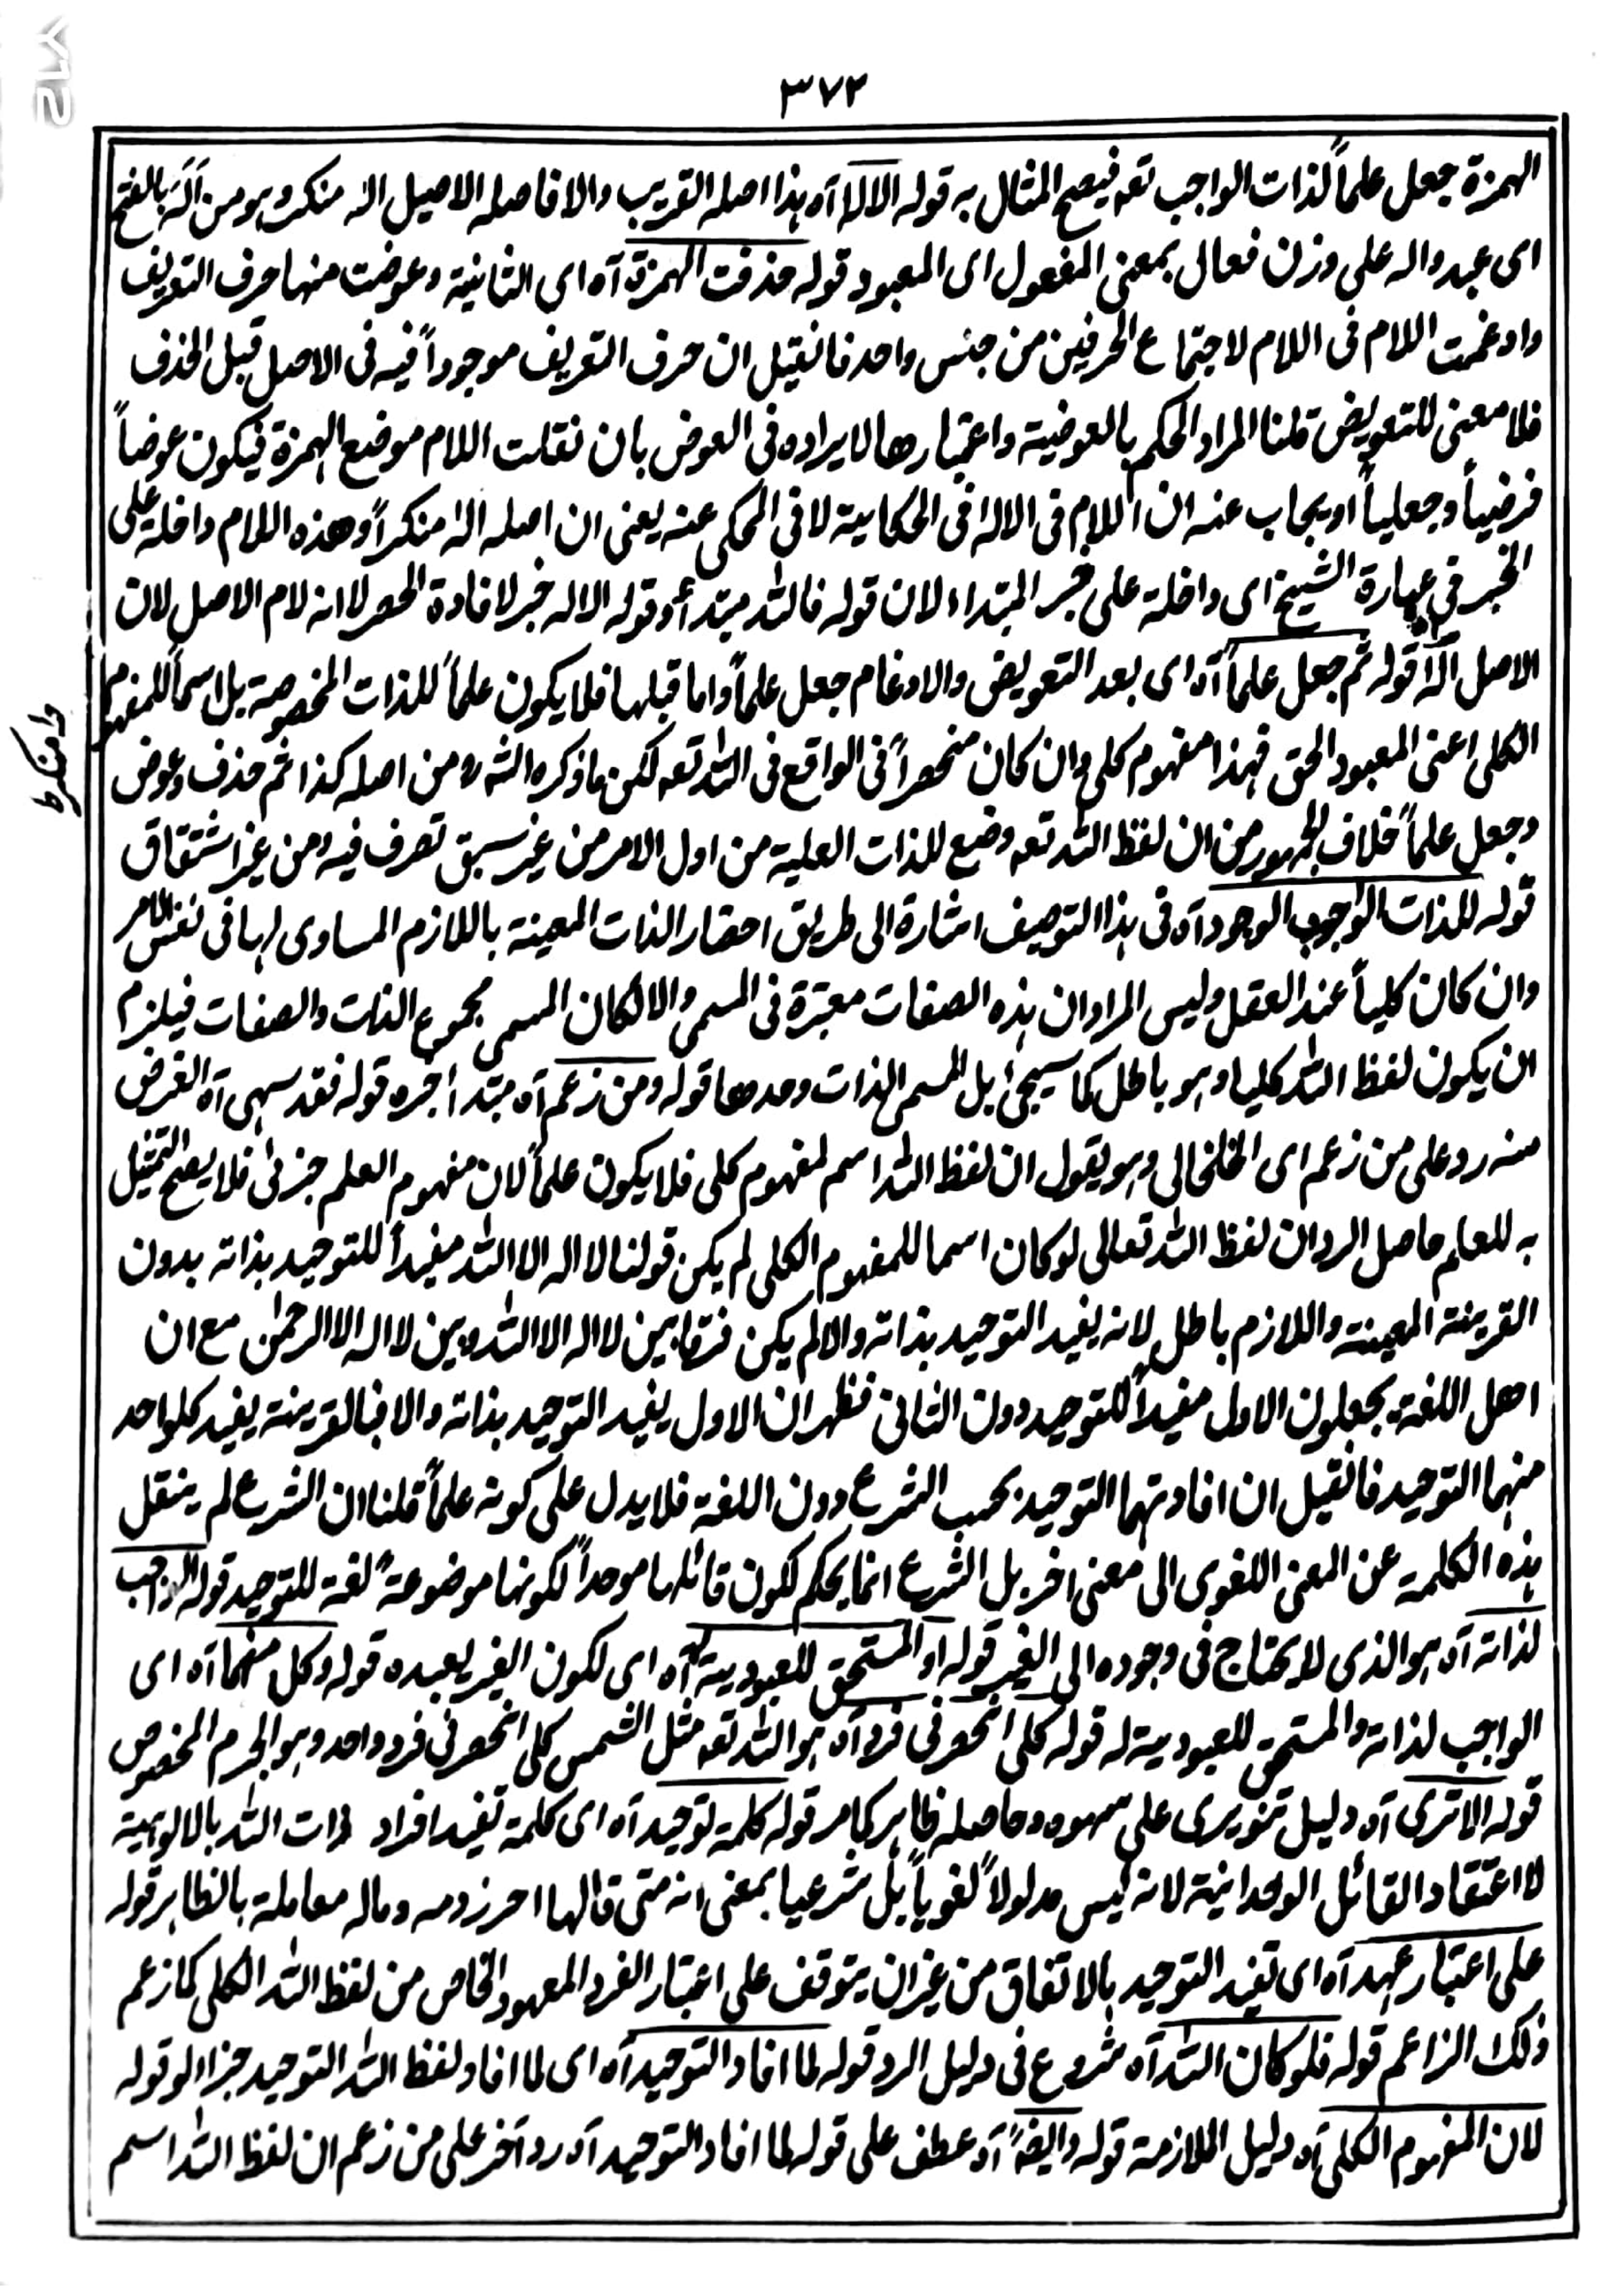 ٣٧٢
الهمزة جعل علماً لذات الواجب تعه فيصح المثال به قوله الالٰه آه هذا اصله القريب والا فاصله الاصيل الٰه منكر وهو من اَلَهَ بالفتح
اى عبد واله على وزن فعال بمعنى المفعول اى المعبود قوله حذفت الهمزة آه اى الثانية وعوضت منها حرف التعريف
وادغمت اللام فى اللام لاجتماع الحرفين من جنس واحد فانقيل ان حرف التعريف موجوداً فيه فى الاصل قبل الحذف
فلا معنى للتعويض قلنا المراد الحكم بالعوضية واعتبارها لا يراده فى العوض بان نقلت اللام موضع الهمزة فيكون عوضاً
فرضياً وجعلياً او يجاب عنه ان اللام فى الاله فى الحكاية لا فى المحكى عنه يعنى ان اصله الٰه منكراً وهذه اللام داخلة على
الخبر فى عبارة الشيخ اى داخلة على خبر المبتداء لان قوله فالله مبتدأ وقوله الاله خبر لافادة الحصر لا انه لام الاصل لان
الاصل الٰهٌ قوله ثم جعل علماً آه اى بعد التعويض والادغام جعل علماً واما قبلها فلا يكون علماً للذات المخصوصة بل اسماً للمفهوم
الكلى اعنى المعبود الحق فهذا مفهوم كلى وان كان منحصراً فى الواقع فى الله تعه لكن ما ذكره الشه ره من اصله كذا ثم حذف وعوض
وجعل علماً خلاف الجمهور من ان لفظ الله تعه وضع للذات العلية من اول الامر من غير سبق تصرف فيه ومن غير اشتقاق
قوله للذات الواجب الوجود آه فى هذا التوصيف اشارة الى طريق احضار الذات المعينة باللازم المساوى لها فى نفس الامر
وان كان كلياً عند العقل وليس المراد ان هذه الصفات معتبرة فى المسمى والا لكان المسمى مجموع الذات والصفات فيلزم
ان يكون لفظ الله كليا وهو باطل كما سيجئ بل المسمى الذات وحدها قوله ومن زعم آه مبتدأ خبره قوله فقد سهى آه الغرض
منه رد على من زعم اى الخلخالى وهو يقول ان لفظ الله اسم لمفهوم كلى فلا يكون علماً لان مفهوم العلم جزئى فلا يصح التمثيل
به للعلم حاصل الرد ان لفظ الله تعالى لو كان اسما للمفهوم الكلى لم يكن قولنا لا اله الا الله مفيداً للتوحيد بذاته بدون
القرينة المعينة واللازم باطل لانه يفيد التوحيد بذاته والا لم يكن فرقا بين لا اله الا الله وبين لا اله الا الرحمٰن مع ان
اهل اللغة يجعلون الاول مفيداً للتوحيد دون الثانى فظهر ان الاول يفيد التوحيد بذاته والا فبالقرينة يفيد كلواحد
منهما التوحيد فانقيل ان افادتهما التوحيد بحسب الشرع دون اللغة فلا يدل على كونه علماً قلنا ان الشرع لم ينقل
هذه الكلمة عن المعنى اللغوى الى معنى اخر بل الشرع انما يحكم لكون قائلها موحداً لكونها موضوعة لغة للتوحيد قوله الواجب
لذاته آه هو الذى لا يحتاج فى وجوده الى الغير قوله او المستحق للعبودية له آه اى لكون الغير يعبده قوله وكل منهما آه اى
الواجب لذاته والمستحق للعبودية له قوله كلى انحصر فى فرد آه هو الله تعه مثل الشمس كلى انحصر فى فرد واحد وهو الجرم المخصوص
قوله الا ترى آه دليل تنويرى على سهوه وحاصله ظاهر كما مر قوله كلمة توحيد آه اى كلمة تفيد افراد ذات الله بالالوهية
لا اعتقاد القائل الوحدانية لانه ليس مدلولاً لغوياً بل شرعيا بمعنى انه متى قالها احرز دمه وماله معاملة بالظاهر قوله
على اعتبار عهد آه اى تفيد التوحيد بالاتفاق من غير ان يتوقف على اعتبار الفرد المعهود الخاص من لفظ الله الكلى كما زعم
ذلك الزاعم قوله فلو كان الله آه شروع فى دليل الرد قوله لما افاد التوحيد آه اى لما افاد لفظ الله التوحيد جزاء لو قوله
لان المفهوم الكلى آه دليل الملازمة قوله وايضاً آه عطف على قوله لما افاد التوحيد آه رد آخر على من زعم ان لفظ الله اسم